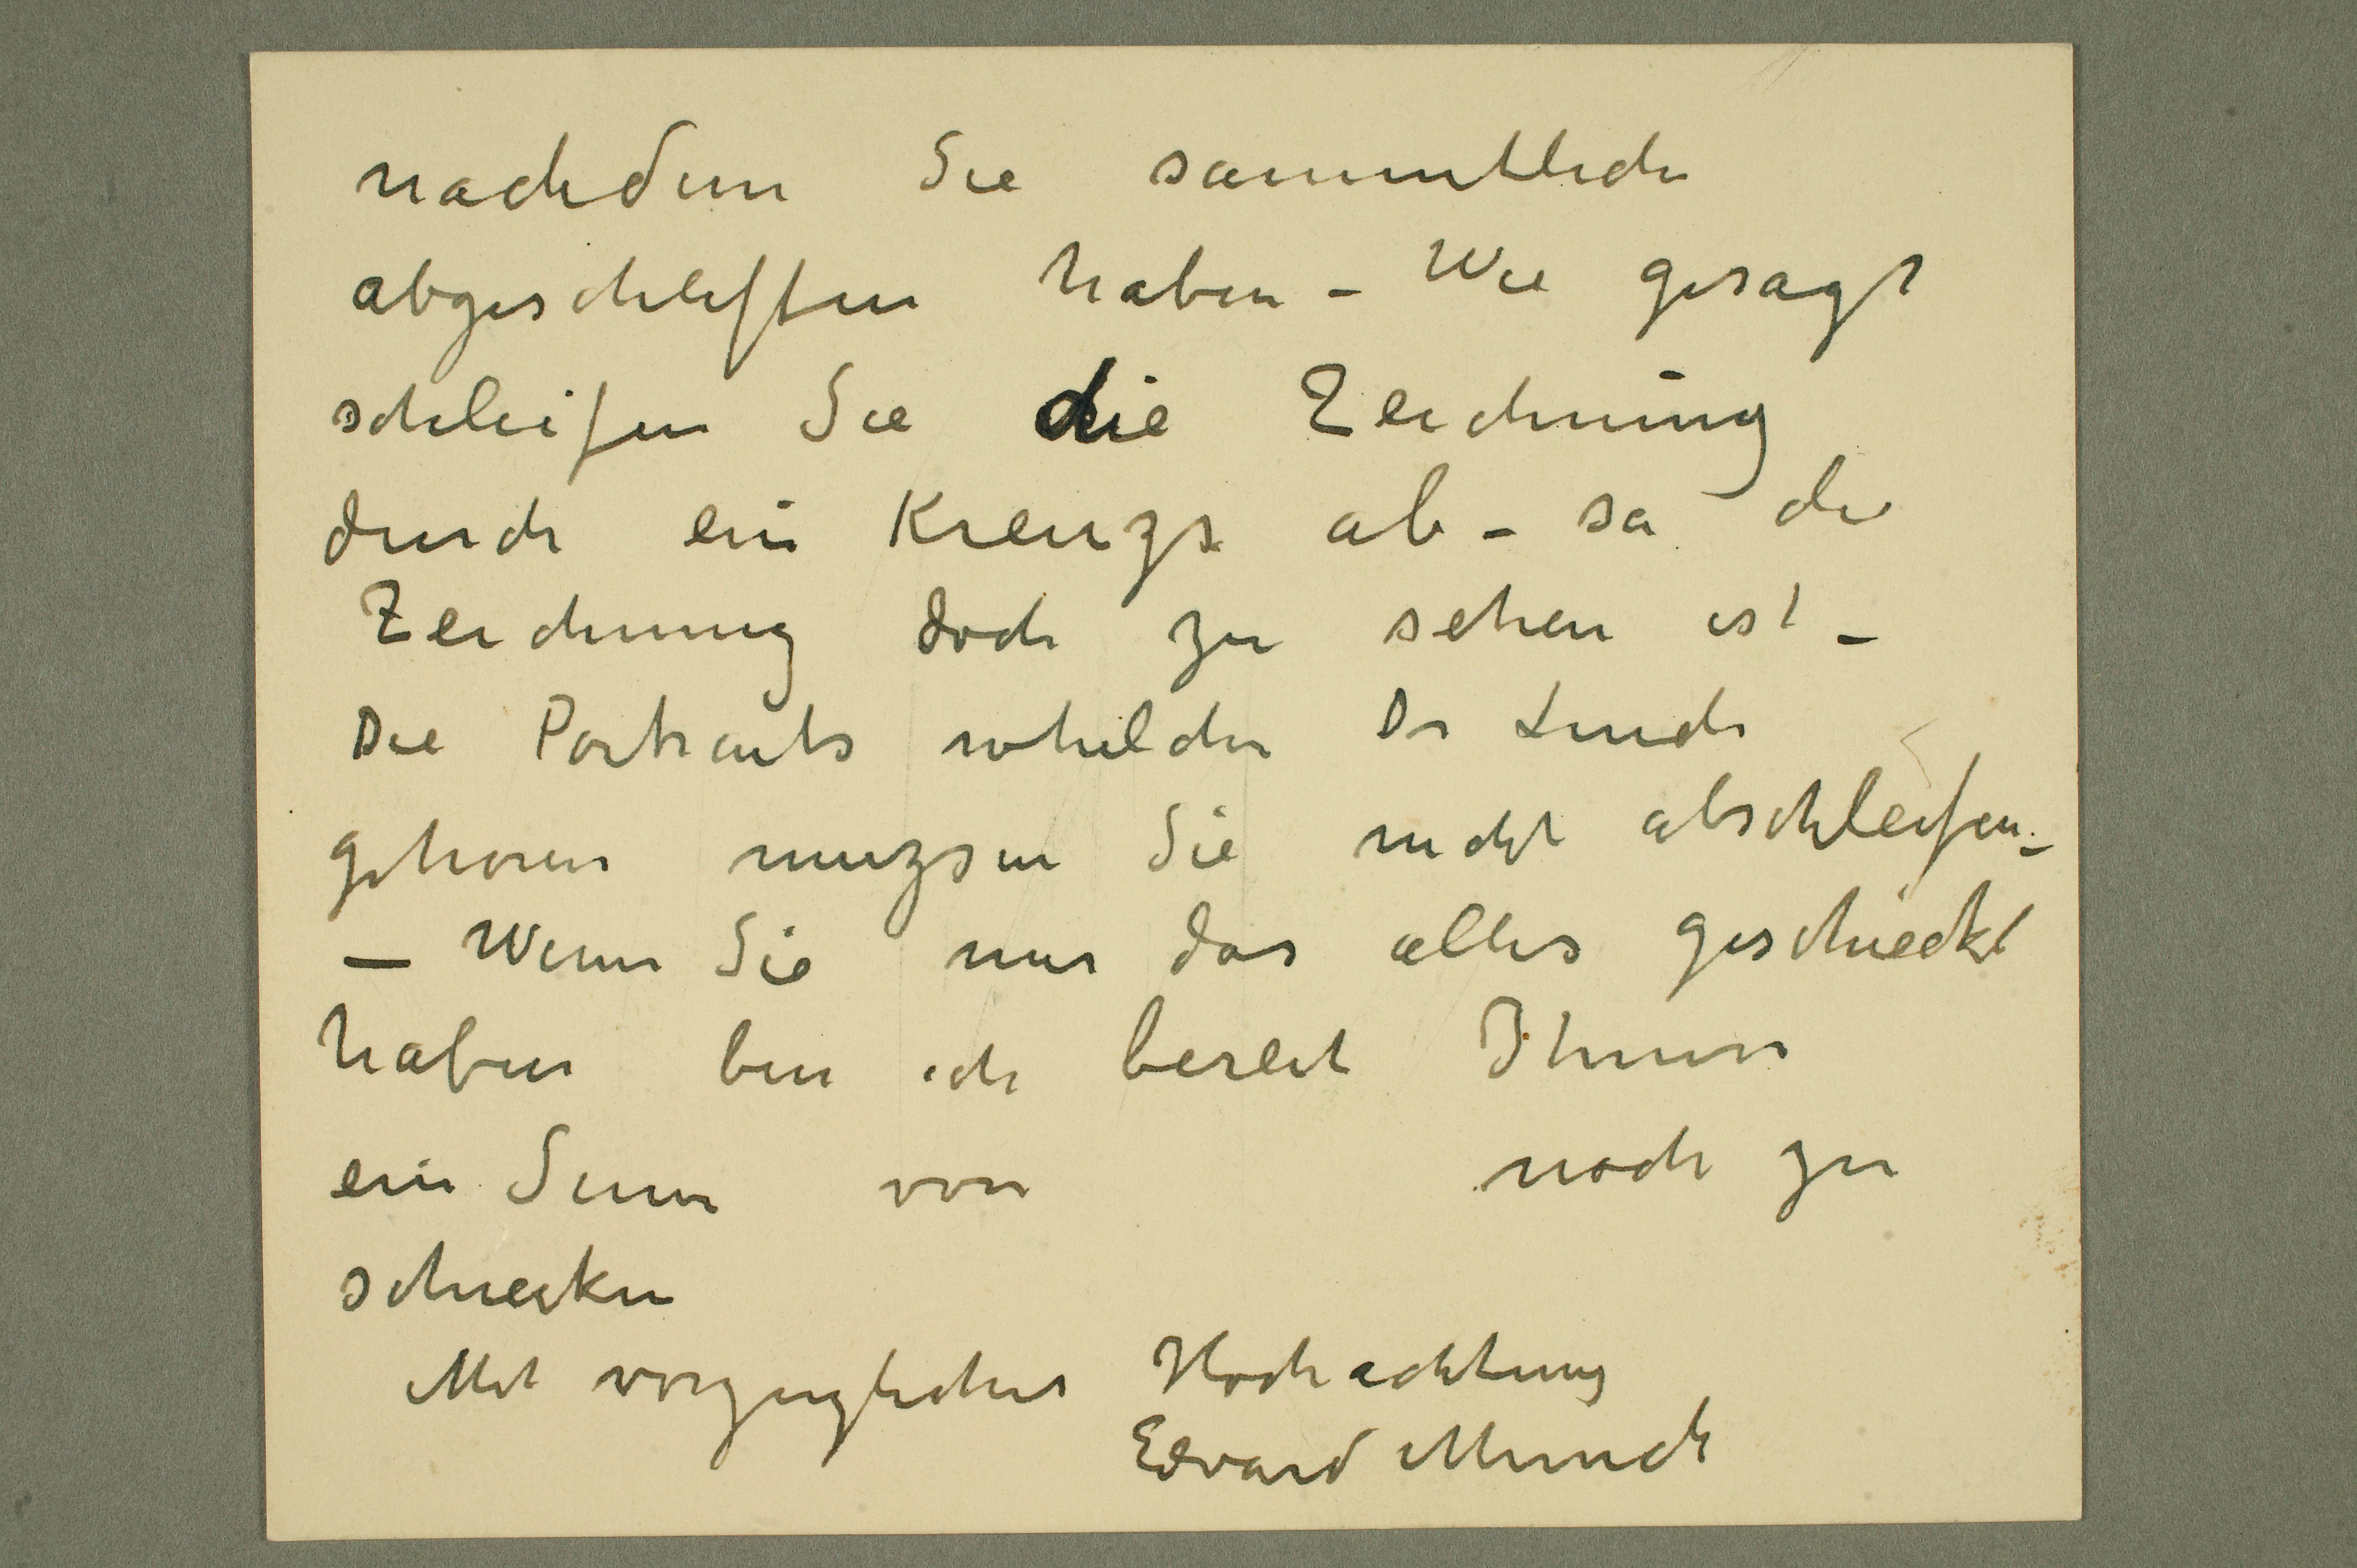 nachdem Sie sammtliche
abgeschliffen haben – Wie gesagt
schleifen Sie die Zeichnung
durch ein Kreuzs ab – sa die
Zeichnung doch zu sehen ist –
Die Portraits whilche Dr Linde
gehoren muzsen Sie nicht abschleifen. –
– Wenn Sie nur das alles geschieckt
haben bin ich bereit Ihnen
ein Sum von noch zu
schiecken
Mit vorzuglicher Hochachtung
Edvard Munch